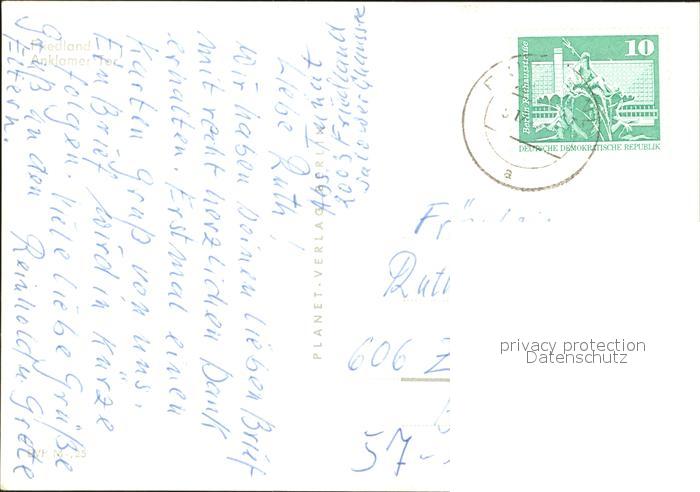 Friedland
Anklamer Tor
Liebe Ruth!
Wir haben Deinen lieben Brief
mit recht herzlichen Dank
erhalten. Erstmal einen
Karten Gruß von uns.
Ein Brief wird in Kürze
folgen. Viele liebe Grüße
Gruß an den Reinhold u. Grete
Eltern.
Abs.
2003 Friedland
PLANET-VERLAG BERLIN
10
Berlin, Rathausstraße
DEUTSCHE DEMOKRATISCHE REPUBLIK
Ruth
606 Z
57-
privacy protection
Datenschutz